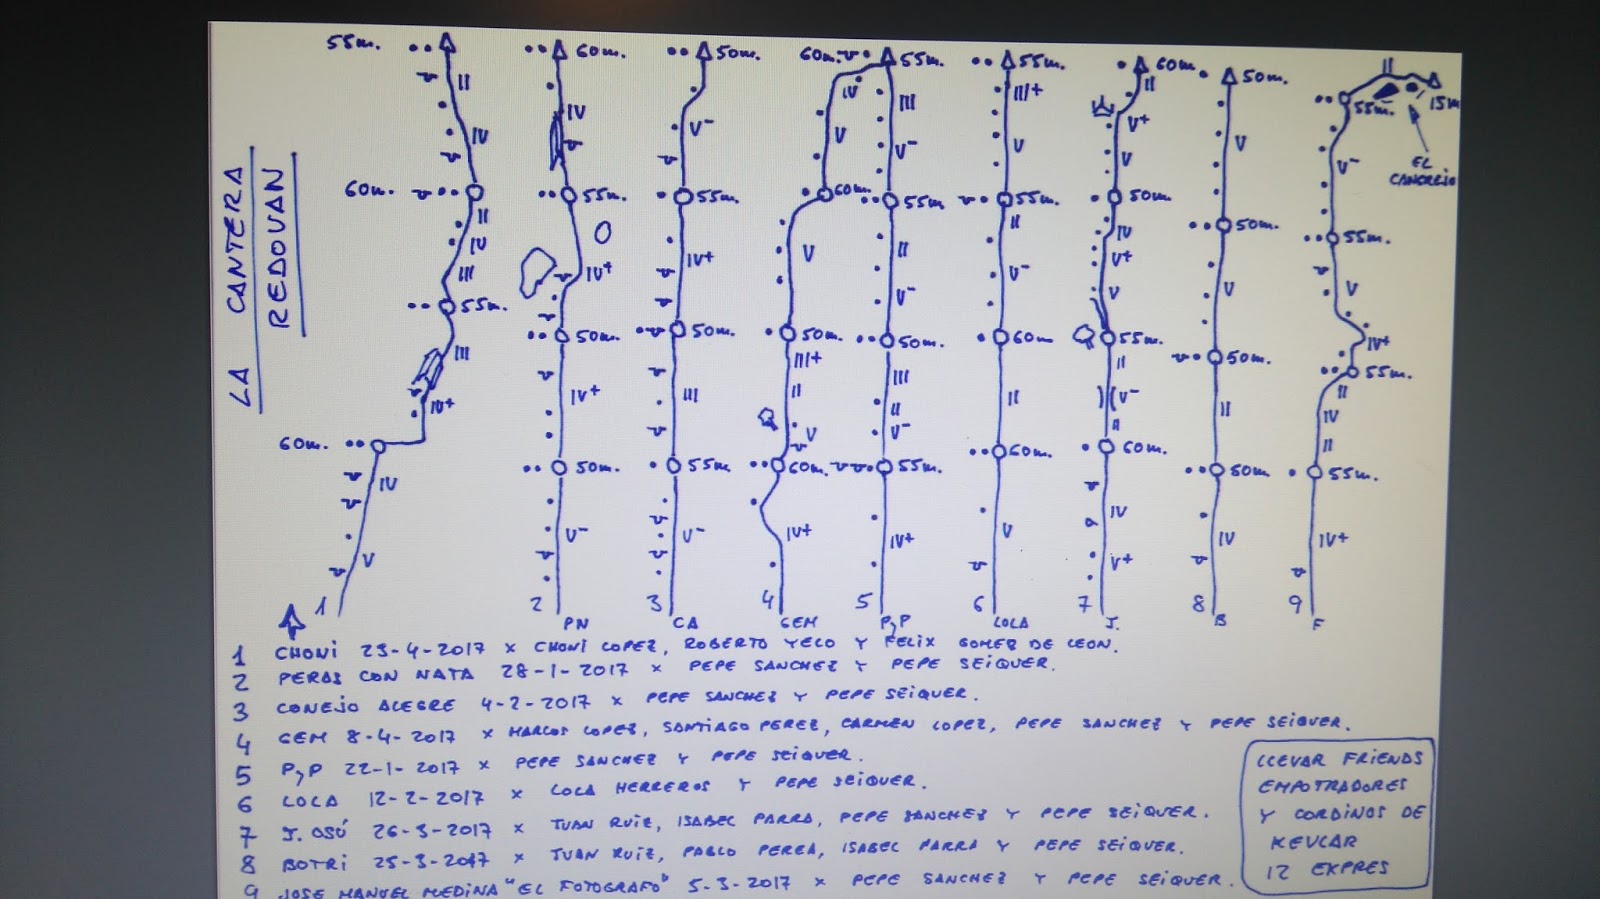 LA CANTERA
REDOVAN
55m.
II
IV
60m.
II
IV
III
55m.
III
IV+
60m.
IV
V
1
60m.
IV
55m.
IV+
50m.
IV+
50m.
V-
2
PN
50m.
V-
55m.
IV+
50m.
III
55m
V-
3
CA
60m.
IV
V
60m.
V
50m.
III+
II
V
60m.
IV+
4
GEM
55m.
III
V-
55m
II
V-
50m.
III
II
V-
55m
IV+
5
PyP
55m.
III+
V
55m.
II
V-
60m
II
60m.
V
6
LOLA
60m.
II
V+
V
50m.
IV
V+
V
55m.
II
V-
II
60m.
IV
V+
7
J.
50m.
V
50m.
V
50m.
II
50m
IV
8
B
II
15m
55m.
EL
CANGREJO
V-
55m.
V
IV+
55m.
II
IV
II
55m.
IV+
9
F
1 CHONI 23-4-2017 x CHONI LOPEZ, ROBERTO YELO Y FELIX GOMEZ DE LEON.
2 PERAS CON NATA 28-1-2017 x PEPE SANCHEZ Y PEPE SEIQUER.
3 CONEJO ALEGRE 4-2-2017 x PEPE SANCHEZ Y PEPE SEIQUER.
4 GEM 8-4-2017 x MARCOS LOPEZ, SANTIAGO PEREZ, CARMEN LOPEZ, PEPE SANCHEZ Y PEPE SEIQUER.
5 PyP 22-1-2017 x PEPE SANCHEZ Y PEPE SEIQUER.
6 LOLA 12-2-2017 x LOLA HERREROS Y PEPE SEIQUER.
7 J. OSÚ 26-3-2017 x JUAN RUIZ, ISABEL PARRA, PEPE SANCHEZ Y PEPE SEIQUER.
8 BOTRI 25-3-2017 x JUAN RUIZ, PABLO PEREA, ISABEL PARRA Y PEPE SEIQUER.
9 JOSE MANUEL MEDINA "EL FOTOGRAFO" 5-3-2017 x PEPE SANCHEZ Y PEPE SEIQUER.
LLEVAR FRIENDS
EMPOTRADORES
Y CORDINOS DE
KEVLAR
12 EXPRES